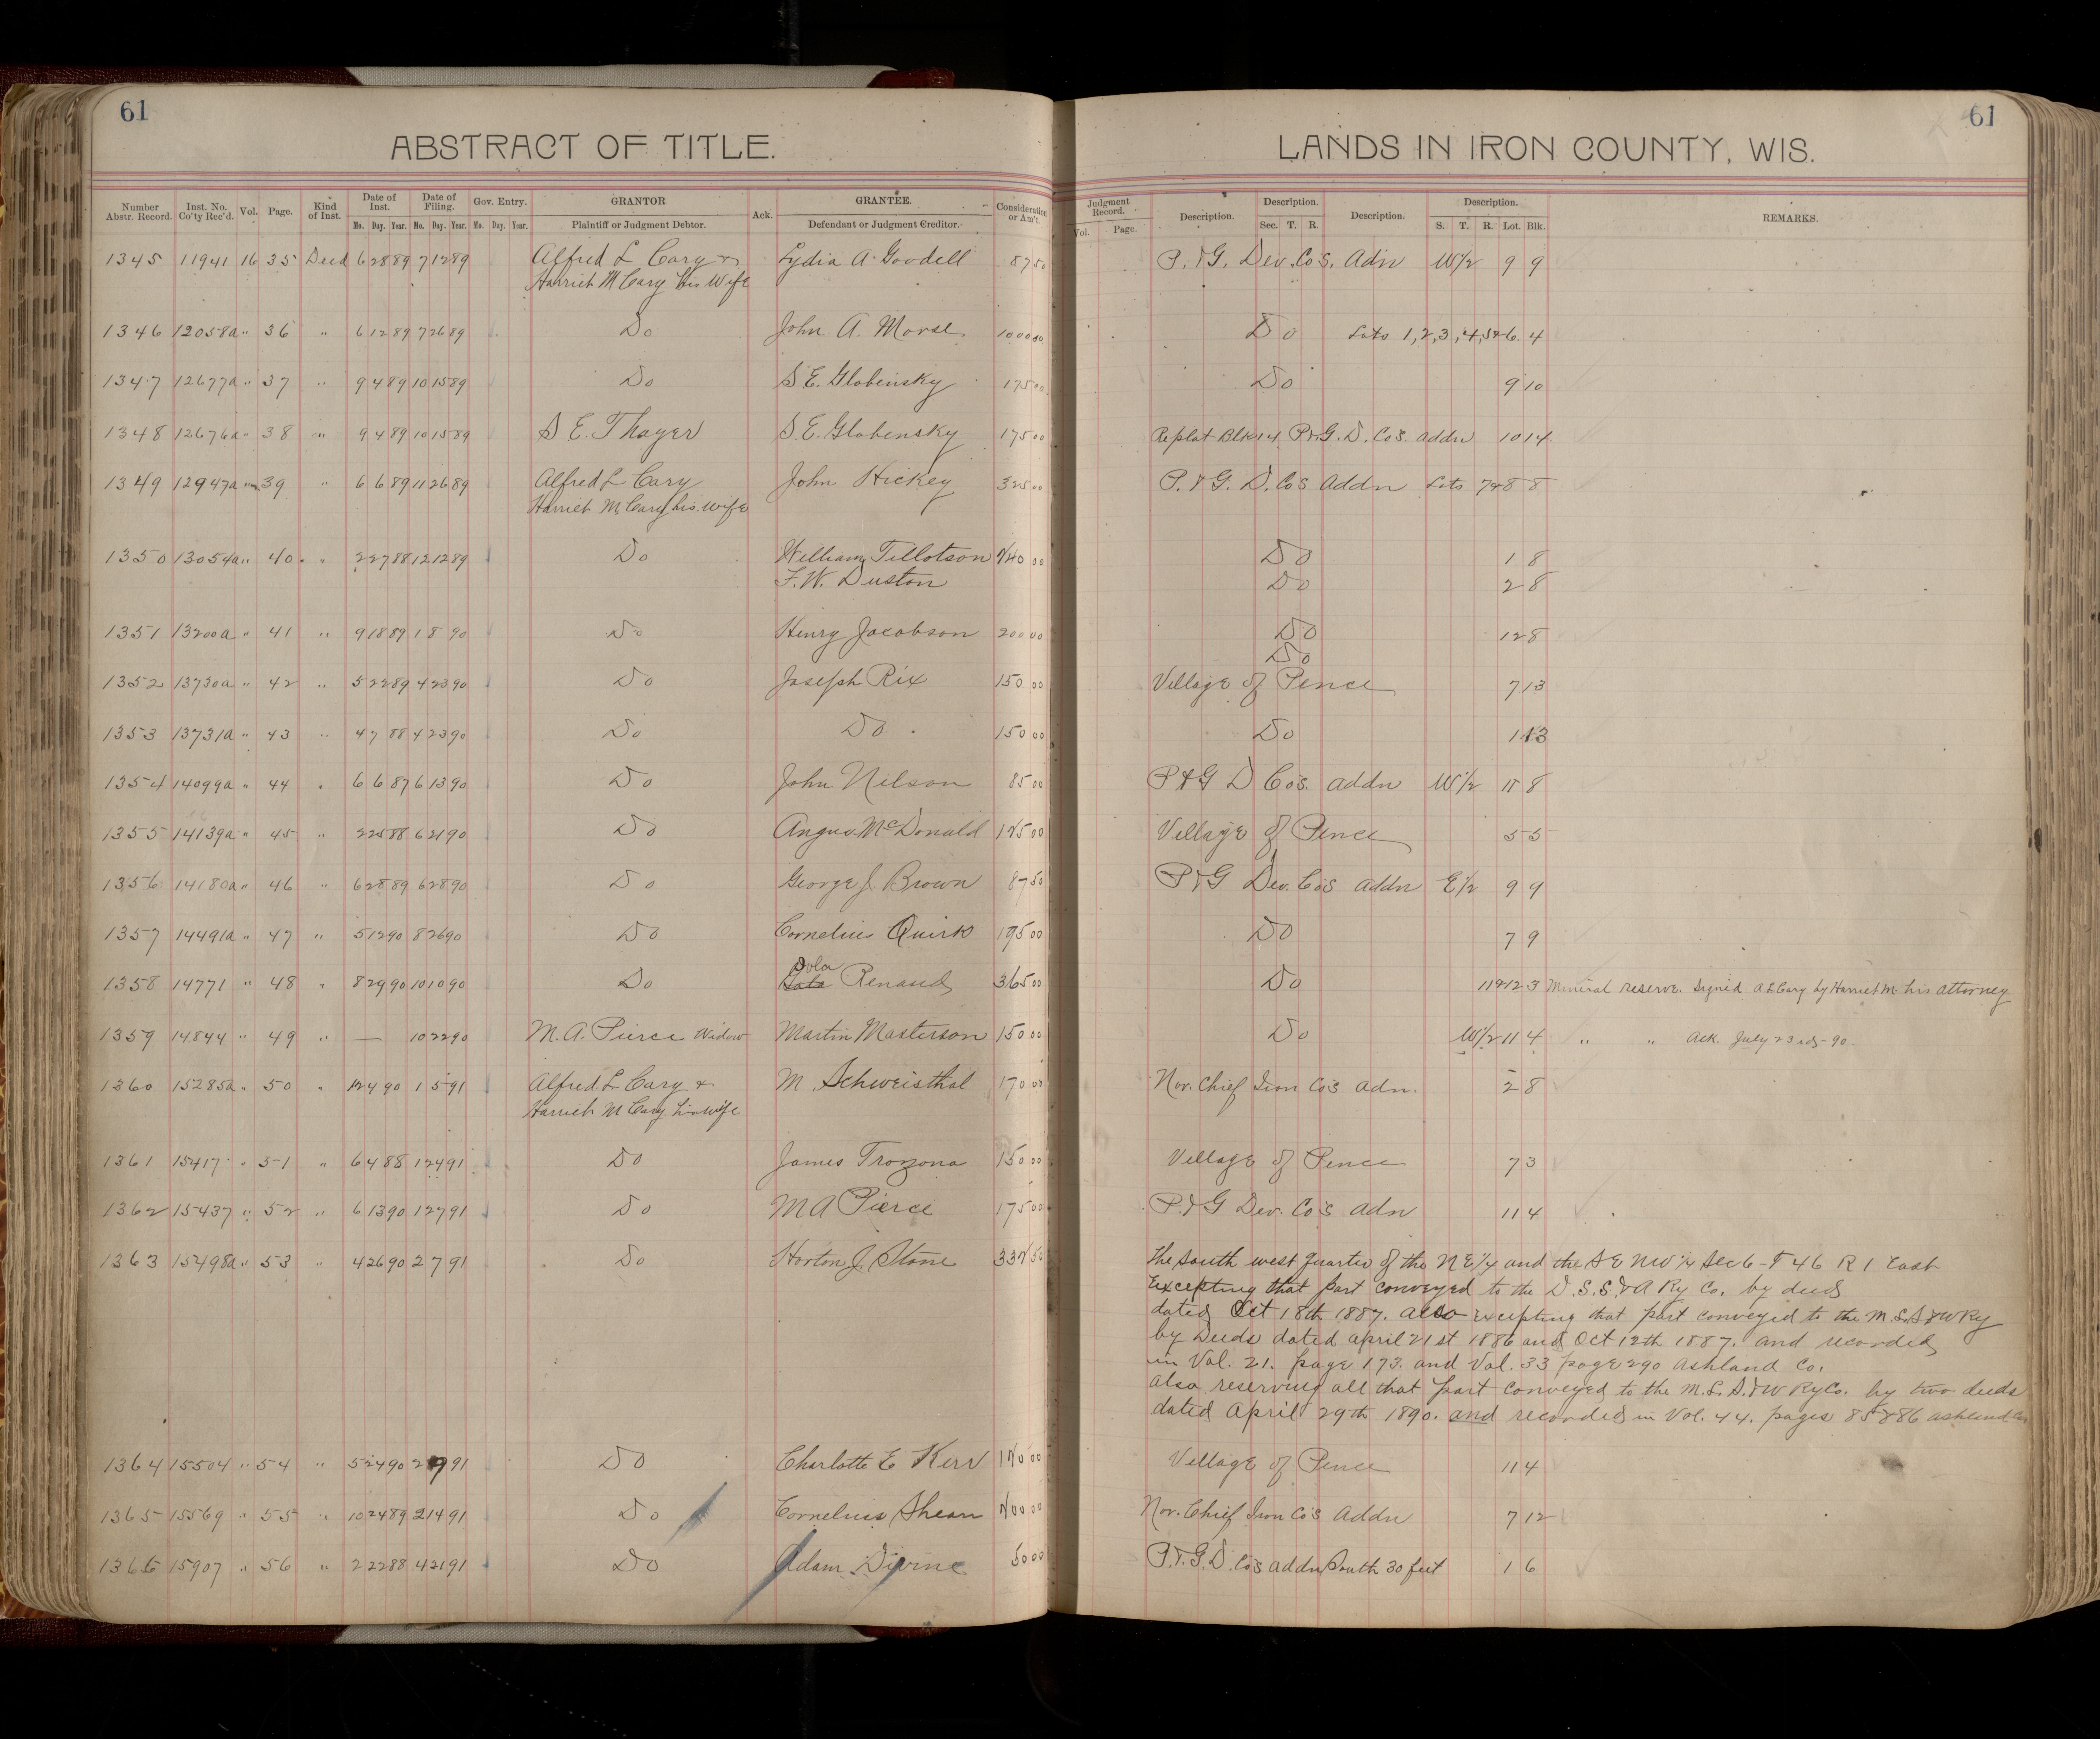 61
ABSTRACT OF TITLE.
Number Abstr. Record. Inst. No. Co'ty Rec'd. Vol. Page. Kind of Inst. Date of Inst. Mo. Day. Year. Date of Filing. Mo. Day. Year. Gov. Entry. Mo. Day. Year. GRANTOR Plaintiff or Judgment Debtor. Ack. GRANTEE. Defendant or Judgment Creditor. Consideration or Am't.
1345 11941 16 35 Deed 6 28 89 7 12 89 Alfred L Cary & Lydia A Goodell 87 50
Harriet M Cary his Wife
1346 12058a " 36 " 6 12 89 7 26 89 Do John A. Morse 1000 00
1347 12677a " 37 " 9 4 89 10 15 89 Do S E. Globensky 175 00
1348 12676a " 38 " 9 4 89 10 15 89 S E. Thayer S. E. Globensky 175 00
1349 12947a " 39 " 6 6 89 11 26 89 Alfred L Cary John Hickey 325 00
Harriet M Cary his wife
1350 13054a " 40 " 2 27 88 12 12 89 Do William Tillotson 240 00
F. W. Duston
1351 13200a " 41 " 9 18 89 1 8 90 Do Henry Jacobson 200 00
1352 13730a " 42 " 5 22 89 4 23 90 Do Joseph Rix 150 00
1353 13731a " 43 " 4 7 88 4 23 90 Do Do 150 00
1354 14099a " 44 " 6 6 87 6 13 90 Do John Nilson 85 00
1355 14139a " 45 " 2 25 88 6 21 90 Do Angus McDonald 125 00
1356 14180a " 46 " 6 28 89 6 28 90 Do George J. Brown 87 50
1357 14491a " 47 " 5 12 90 8 26 90 Do Cornelius Quirk 195 00
1358 14771 " 48 " 8 29 90 10 10 90 Do Renaud 365 00
1359 14844 " 49 " — 10 22 90 M. A. Pierce Widow Martin Masterson 150 00
1360 15285a " 50 " 12 4 90 1 5 91 Alfred L Cary & M. Schweisthal 170 00
Harriet M Cary his wife
1361 15417 " 51 " 6 4 88 1 24 91 Do James Trozona 150 00
1362 15437 " 52 " 6 13 90 1 27 91 Do M A Pierce 175 00
1363 15498a " 53 " 4 26 90 2 7 91 Do Horton J. Stone 50
1364 15504 " 54 " 5 24 90 2 9 91 Do Charlotte E Kerr 00
1365 15569 " 55 " 10 24 89 2 14 91 Do Cornelius Shean 00 00
1366 15907 " 56 " 2 22 88 4 21 91 Do Adam Divine 50 00
61
LANDS IN IRON COUNTY, WIS.
Judgment Record. Vol. Page. Description. Description. Sec. T. R. Description. Description. S. T. R. Lot. Blk. REMARKS.
P. & G. Dev. Co's. Adn W 1/2 9 9
Do Lots 1,2,3,4,5&6. 4
Do 9 10
Replat Blk 14 P&G. D. Co's. addn 10 14
P. & G. D. Co's addn Lots 7&8 8
Do 1 8
Do 2 8
Do 12 8
Do
Village of Pence 7 13
Do 13
P & G D Co's. addn W 1/2 8
Village of Pence 5 5
P & G Dev. Co's addn E 1/2 9 9
Do 7 9
Do 11&12 3 Mineral reserve. Signed A L Cary by Harriet M. his attorney
Do W 1/2 11 4 " " Ack. July 23rd - 90.
Nor. Chief Iron Co's adn. 2 8
Village of Pence 7 3
P. & G Dev. Co's adn 11 4
The South west quarter of the N E 1/4 and the S E NW 1/4 Sec 6 - T 46 R 1 East
Excepting that part conveyed to the D. S. S. & A Ry Co. by deed
dated Oct 18th 1887. also excepting that part conveyed to the M. L. S & W Ry
by Deeds dated april 21st 1886 and Oct 12th 1887. and recorded
in Vol. 21. page 173. and Vol. 33 page 290 Ashland Co.
also reserving all that part conveyed to the M. L. S. & W Ry Co. by two deeds
dated April 29th 1890. and recorded in Vol. 44. pages 85&86 ashland Co
Village of Pence 11 4
Nor. Chief Iron Co's Addn 7 12
P. & G. D. Co's addn South 30 feet 1 6